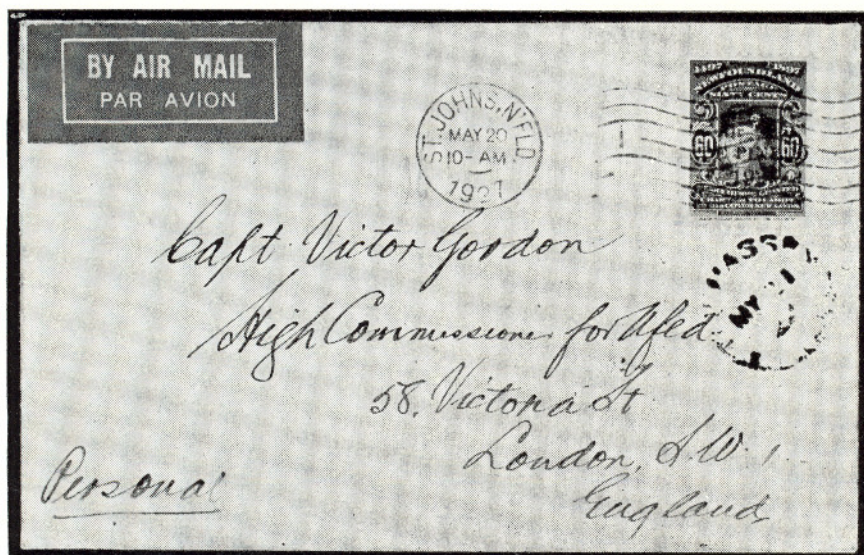 BY AIR MAIL
PAR AVION
ST. JOHNS, N'FLD.
MAY 20
10- AM
1927
1497 1897
NEWFOUNDLAND
POSTAGE
SIXTY CENTS
60 60
MY 21
Capt Victor Gordon
High Commissioner for Nfld
58, Victoria St
London, S.W. 1
England
Personal